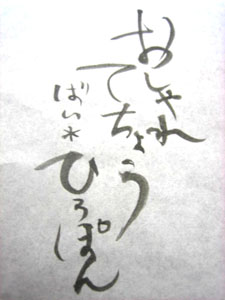 おしゃれ
てちょう
ばい ホ
ひろぽん